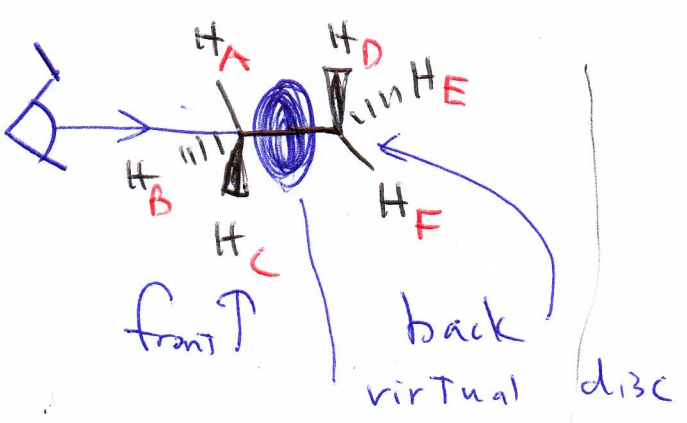 H A
H D
H E
H B
H C
H F
front
back
virtual disc